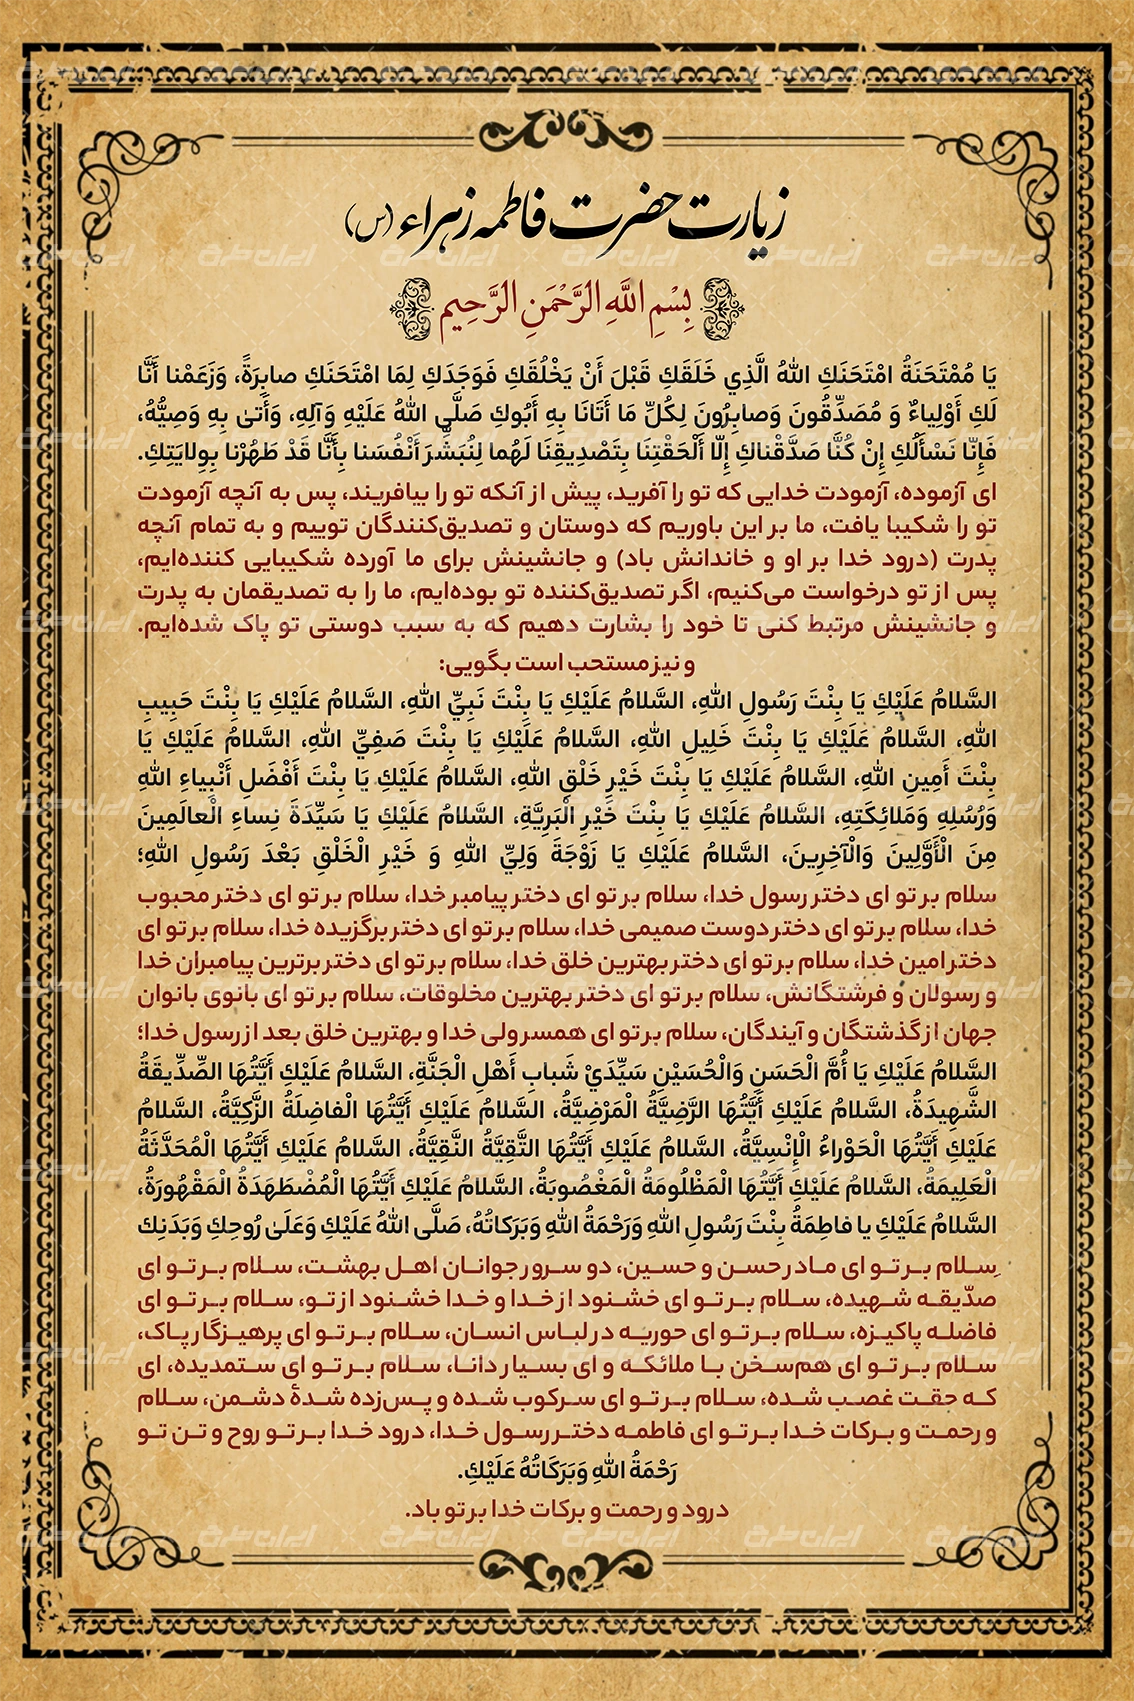 زیارت حضرت فاطمه زهراء (س)
بِسْمِ اللَّهِ الرَّحْمَنِ الرَّحِيمِ
يَا مُمْتَحَنَةُ امْتَحَنَكِ اللهُ الَّذِي خَلَقَكِ قَبْلَ أَنْ يَخْلُقَكِ فَوَجَدَكِ لِمَا امْتَحَنَكِ صابِرَةً، وَزَعَمْنا أَنَّا
لَكِ أَوْلِياءٌ وَ مُصَدِّقُونَ وَصابِرُونَ لِكُلِّ مَا أَتَانَا بِهِ أَبُوكِ صَلَّى اللهُ عَلَيْهِ وَآلِهِ، وَأَتىٰ بِهِ وَصِيُّهُ،
فَإِنّا نَسْأَلُكِ إِنْ كُنَّا صَدَّقْناكِ إِلّا أَلْحَقْتِنَا بِتَصْدِيقِنَا لَهُما لِنُبَشِّرَ أَنْفُسَنا بِأَنَّا قَدْ طَهُرْنا بِوِلايَتِكِ.
ای آزموده، آزمودت خدایی که تو را آفرید، پیش از آنکه تو را بیافریند، پس به آنچه آزمودت
تو را شکیبا یافت، ما بر این باوریم که دوستان و تصدیق‌کنندگان توییم و به تمام آنچه
پدرت (درود خدا بر او و خاندانش باد) و جانشینش برای ما آورده شکیبایی کننده‌ایم،
پس از تو درخواست می‌کنیم، اگر تصدیق‌کننده تو بوده‌ایم، ما را به تصدیقمان به پدرت
و جانشینش مرتبط کنی تا خود را بشارت دهیم که به سبب دوستی تو پاک شده‌ایم.
و نیز مستحب است بگویی:
السَّلامُ عَلَيْكِ يَا بِنْتَ رَسُولِ اللهِ، السَّلامُ عَلَيْكِ يَا بِنْتَ نَبِيِّ اللهِ، السَّلامُ عَلَيْكِ يَا بِنْتَ حَبِيبِ
اللهِ، السَّلامُ عَلَيْكِ يَا بِنْتَ خَلِيلِ اللهِ، السَّلامُ عَلَيْكِ يَا بِنْتَ صَفِيِّ اللهِ، السَّلامُ عَلَيْكِ يَا
بِنْتَ أَمِينِ اللهِ، السَّلامُ عَلَيْكِ يَا بِنْتَ خَيْرِ خَلْقِ اللهِ، السَّلامُ عَلَيْكِ يَا بِنْتَ أَفْضَلِ أَنْبِياءِ اللهِ
وَرُسُلِهِ وَمَلائِكَتِهِ، السَّلامُ عَلَيْكِ يَا بِنْتَ خَيْرِ الْبَرِيَّةِ، السَّلامُ عَلَيْكِ يَا سَيِّدَةَ نِساءِ الْعالَمِينَ
مِنَ الْأَوَّلِينَ وَالْآخِرِينَ، السَّلامُ عَلَيْكِ يَا زَوْجَةَ وَلِيِّ اللهِ وَ خَيْرِ الْخَلْقِ بَعْدَ رَسُولِ اللهِ؛
سلام بر تو ای دختر رسول خدا، سلام بر تو ای دختر پیامبر خدا، سلام بر تو ای دختر محبوب
خدا، سلام بر تو ای دختر دوست صمیمی خدا، سلام بر تو ای دختر برگزیده خدا، سلام بر تو ای
دختر امین خدا، سلام بر تو ای دختر بهترین خلق خدا، سلام بر تو ای دختر برترین پیامبران خدا
و رسولان و فرشتگانش، سلام بر تو ای دختر بهترین مخلوقات، سلام بر تو ای بانوی بانوان
جهان از گذشتگان و آیندگان، سلام بر تو ای همسر ولی خدا و بهترین خلق بعد از رسول خدا؛
السَّلامُ عَلَيْكِ يَا أُمَّ الْحَسَنِ وَالْحُسَيْنِ سَيِّدَيْ شَبابِ أَهْلِ الْجَنَّةِ، السَّلامُ عَلَيْكِ أَيَّتُهَا الصِّدِّيقَةُ
الشَّهِيدَةُ، السَّلامُ عَلَيْكِ أَيَّتُهَا الرَّضِيَّةُ الْمَرْضِيَّةُ، السَّلامُ عَلَيْكِ أَيَّتُهَا الْفاضِلَةُ الزَّكِيَّةُ، السَّلامُ
عَلَيْكِ أَيَّتُهَا الْحَوْراءُ الْإِنْسِيَّةُ، السَّلامُ عَلَيْكِ أَيَّتُهَا التَّقِيَّةُ النَّقِيَّةُ، السَّلامُ عَلَيْكِ أَيَّتُهَا الْمُحَدَّثَةُ
الْعَلِيمَةُ، السَّلامُ عَلَيْكِ أَيَّتُهَا الْمَظْلُومَةُ الْمَغْصُوبَةُ، السَّلامُ عَلَيْكِ أَيَّتُهَا الْمُضْطَهَدَةُ الْمَقْهُورَةُ،
السَّلامُ عَلَيْكِ يا فاطِمَةُ بِنْتَ رَسُولِ اللهِ وَرَحْمَةُ اللهِ وَبَرَكاتُهُ، صَلَّى اللهُ عَلَيْكِ وَعَلَىٰ رُوحِكِ وَبَدَنِك
ِسلام بر تو ای مادر حسن و حسین، دو سرور جوانان اهل بهشت، سلام بر تو ای
صدّیقه شهیده، سلام بر تو ای خشنود از خدا و خدا خشنود از تو، سلام بر تو ای
فاضله پاکیزه، سلام بر تو ای حوریه در لباس انسان، سلام بر تو ای پرهیزگار پاک،
سلام بر تو ای هم‌سخن با ملائکه و ای بسیار دانا، سلام بر تو ای ستمدیده، ای
که حقت غصب شده، سلام بر تو ای سرکوب شده و پس‌زده شدهٔ دشمن، سلام
و رحمت و برکات خدا بر تو ای فاطمه دختر رسول خدا، درود خدا بر تو روح و تن تو
رَحْمَةُ اللهِ وَبَرَكَاتُهُ عَلَيْكِ.
درود و رحمت و برکات خدا بر تو باد.